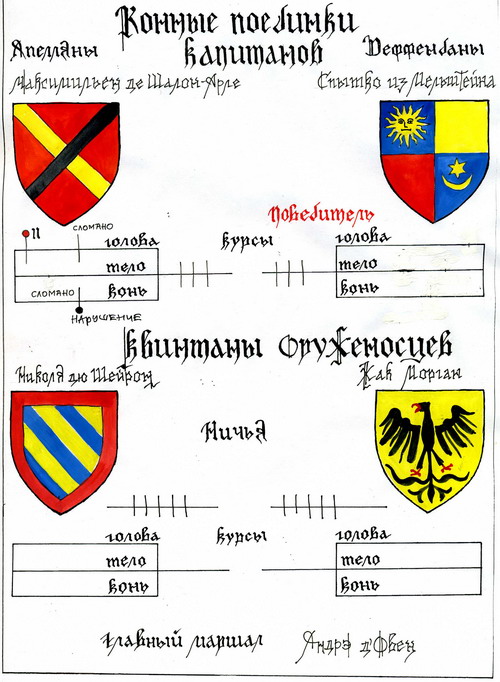 Конные поединки
капитанов
Апелланы
Деффенданы
Максимильен де Шалон-Арле
Спытко из Мельштейна
Победитель
П
сломано
голова
тело
конь
сломано
нарушение
курсы
голова
тело
конь
Квинтаны оруженосцев
Никола дю Шейрон
Жак Морган
Ничья
голова
тело
конь
курсы
голова
тело
конь
Главный маршал
Андрэ д'Овен